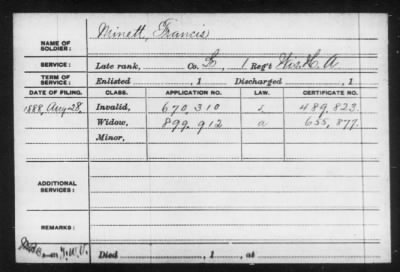 NAME OF SOLDIER: Minett, Francis
SERVICE: Late rank, Co. L, 1 Reg't Wis. H. A
TERM OF SERVICE: Enlisted , 1 Discharged , 1
DATE OF FILING. CLASS. APPLICATION NO. LAW. CERTIFICATE NO.
1888, Aug. 28, Invalid, 670,310 489,823.
Widow, 899,912 a 655,877.
Minor,
ADDITIONAL SERVICES:
REMARKS:
Died , 1 , at